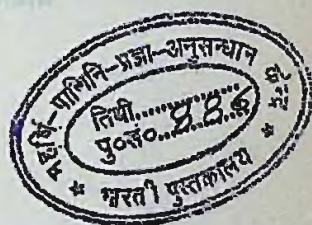 महर्षि-पाणिनि-प्रज्ञा-अनुसन्धान केन्द्र
तिथी..............
पु०सं०..886..
* भारती पुस्तकालय *